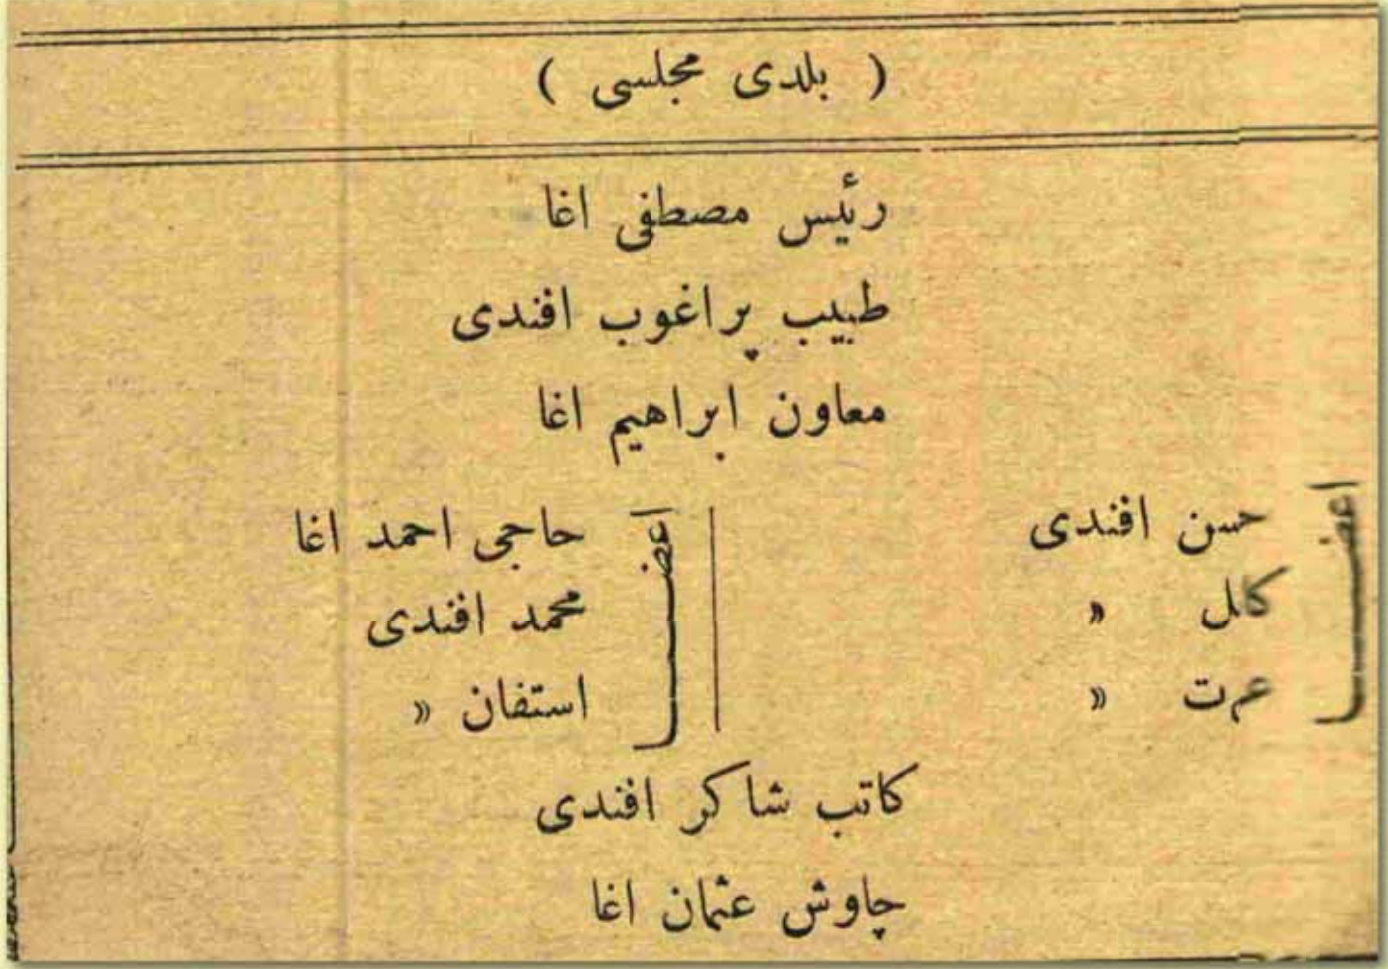 ( بلدی مجلسی )
رئیس مصطفی اغا
طبیب پراغوب افندی
معاون ابراهیم اغا
اعضا
حسن افندی
کامل »
عزت »
اعضا
حاجی احمد اغا
محمد افندی
استفان »
کاتب شاکر افندی
چاوش عثمان اغا